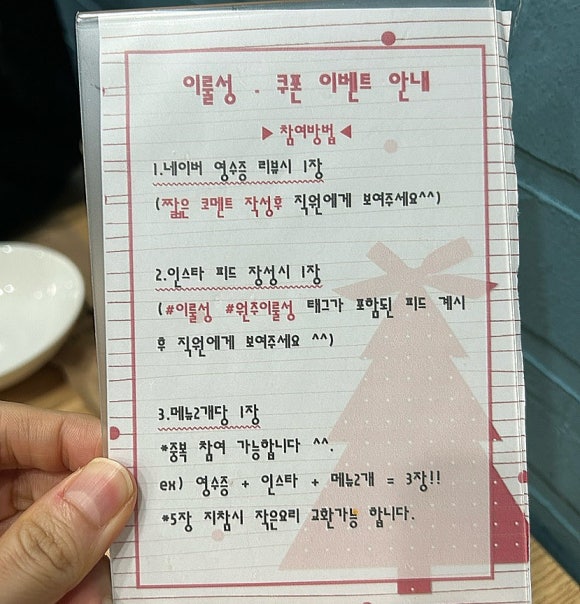 이룰성 . 쿠폰 이벤트 안내
▶참여방법◀
1.네이버 영수증 리뷰시 1장
(짧은 코멘트 작성후 직원에게 보여주세요^^)
2.인스타 피드 장성시 1장
(#이룰성 #원주이룰성 태그가 포함된 피드 게시
후 직원에게 보여주세요 ^^)
3.메뉴2개당 1장
*중복 참여 가능합니다 ^^.
ex) 영수증 + 인스타 + 메뉴2개 = 3장!!
*5장 지참시 작은요리 교환가능 합니다.